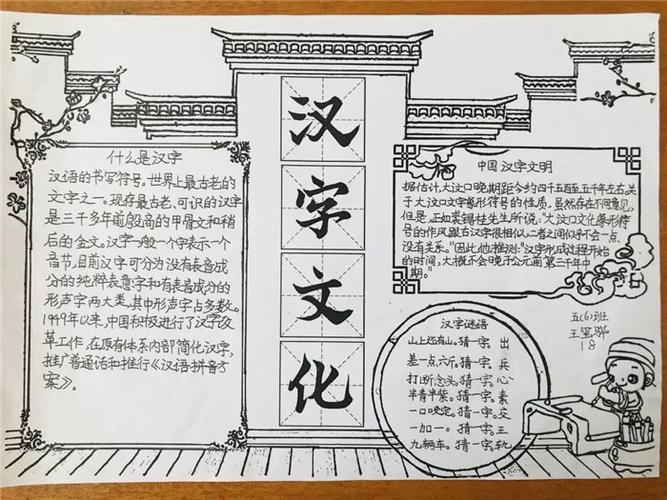 什么是汉字
汉语的书写符号。世界上最古老的
文字之一。现存最古老、可识的汉字
是三千多年前殷商的甲骨文和稍
后的金文。汉字一般一个字表示一个
音节，目前汉字可分为没有表音成
分的纯粹表意字和有表音成分的
形声字两大类，其中形声字占多数。
1949年以来，中国积极进行了汉字改
革工作，在原有体系内部简化汉字，
推广普通话和推行《汉语拼音方
案》。
汉
字
文
化
中国汉字文明
据估计，大汶口晚期距今约四千五百至五千年左右，关
于大汶口文字象形符号的性质，虽然存在不同意见，
但是，正如裘锡圭先生所说："大汶口文化象形符
号的作风跟古汉字很相似，二者之间似乎不会一点
没有关系。"因此他推测："汉字形成过程开始
的时间，大概不会晚于公元前第三千年中
期。"
汉字谜语
山上还有山。猜一字。出
差一点，六斤。猜一字。兵
打断念头。猜一字。心
半青半紫。猜一字。素
一口咬定。猜一字。交
一加一。猜一字。王
九辆车。猜一字。轨
五(6)班
王
18